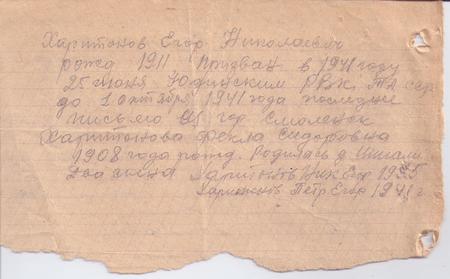 Харитонов Егор Николаевич
рожд 1911 Призван в 1941 году
25 июня Юдинским РВК, ТА ССР
до 1 октября 1941 года последнее
письмо из гор Смоленск
Харитонова Фекла Сидоровна
1908 года рожд. Родилась д
два сына Харитонов Ник Егор 1935
Харитонов Петр Егор 1941 г